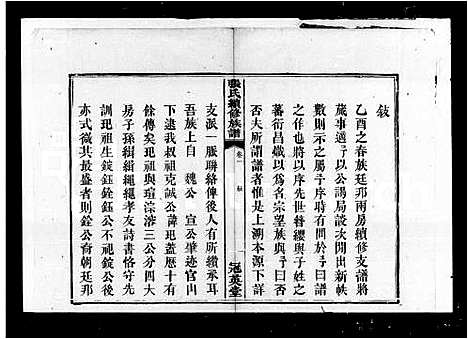 敍
乙酉之春族廷邦兩房續修支譜將
蕆事適予以公謁局設次閱出新帙
數則示之屬予序時有數於予曰譜
之作也將以序先世簪纓與子姓之
蕃衍昌熾以爲名宗望族與予曰否
否夫所謂譜者惟是上溯本源下詳
張氏續修族譜
卷一
敍
冠英堂
支派一脈聯絡俾後人有所纘承耳
吾族上自 魏公 宣公肇迹官山
迄下逮我叔祖克誠公諱玘蓋歷十有
餘傳矣玘祖與瑄淙潪三公分四大
房子孫緝緝繩繩孝友詩書恪守先
訓玘祖生銓鈺鎮鈺公不祀鎮公後
亦式微其最盛者則銓公裔朝廷邦